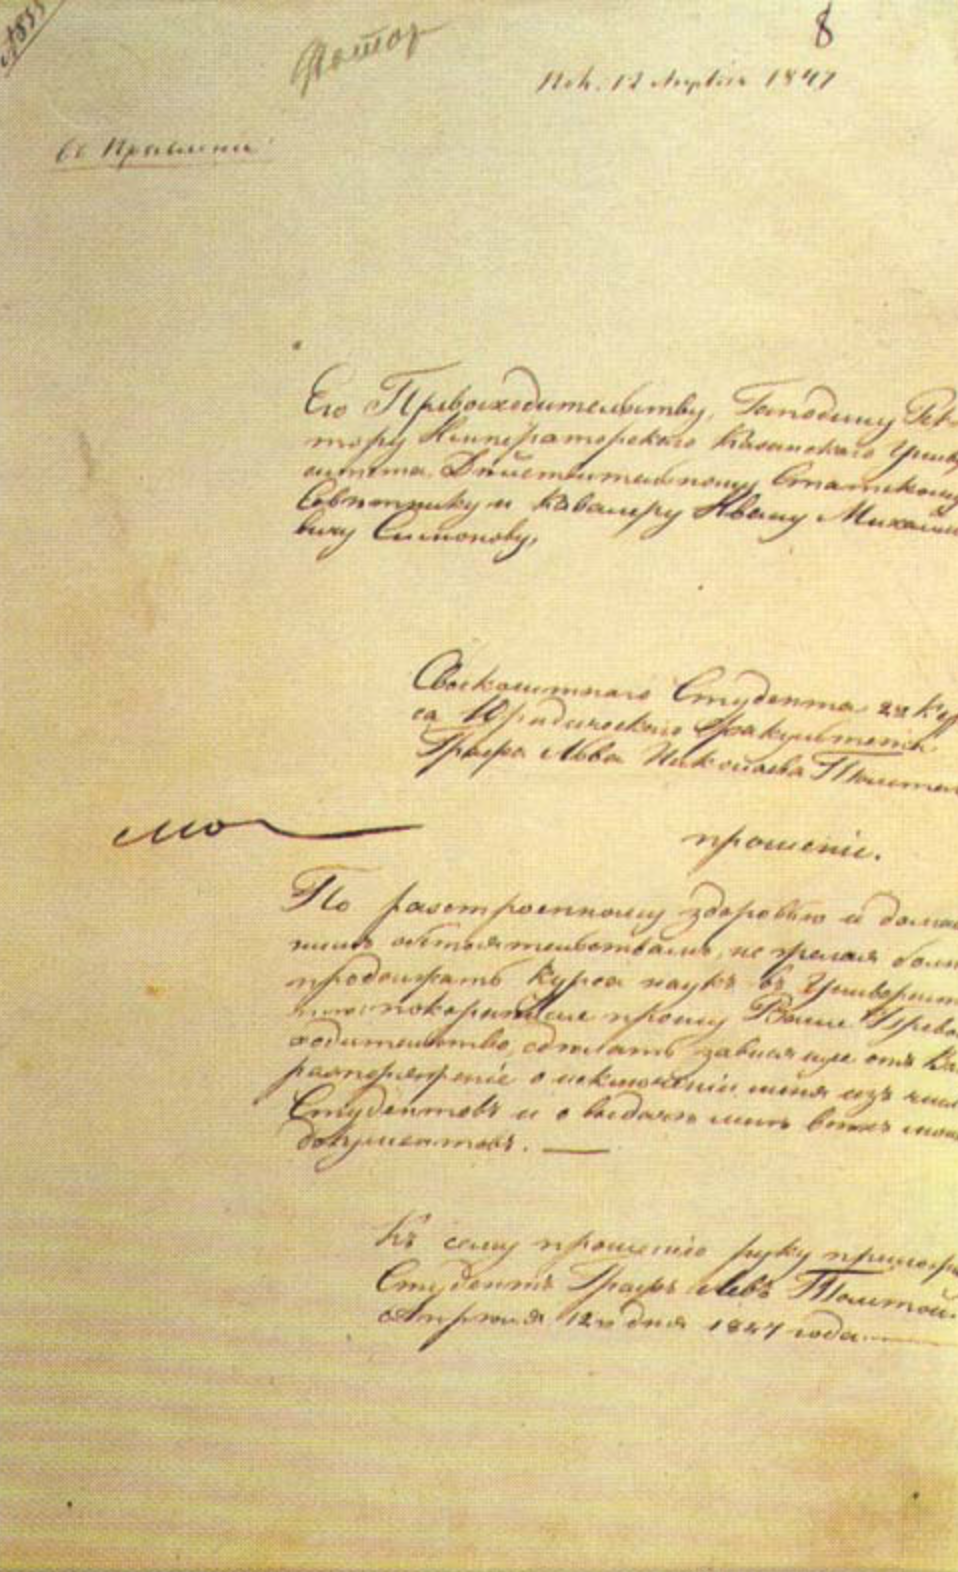 8
Пол. 12 Апреля 1847
Въ Правленіе
Его Превосходительству, Господину Рек-
тору Императорскаго Казанскаго Униве
ситета. Дѣйствительному Статскому
Совѣтнику и Кавалеру Ивану Михайло
вичу Симонову,
Своекоштнаго Студента 2го Кур
са Юридическаго Факультета
Графа Льва Николаева Толстаг
прошеніе.
По разстроенному здоровью и домаш
нимъ обстоятельствамъ, не желая боль
продолжать курса наукъ въ Университ
покорнѣйше прошу Ваше Превос
ходительство, сдѣлать зависящее отъ Ва
распоряженіе о исключеніи меня изъ числ
Студентовъ и о выдачѣ мнѣ всѣхъ мои
документовъ. —
Къ сему прошенію руку приложи
Студентъ Графъ Левъ Толстой.
Апрѣля 12го дня 1847 года.